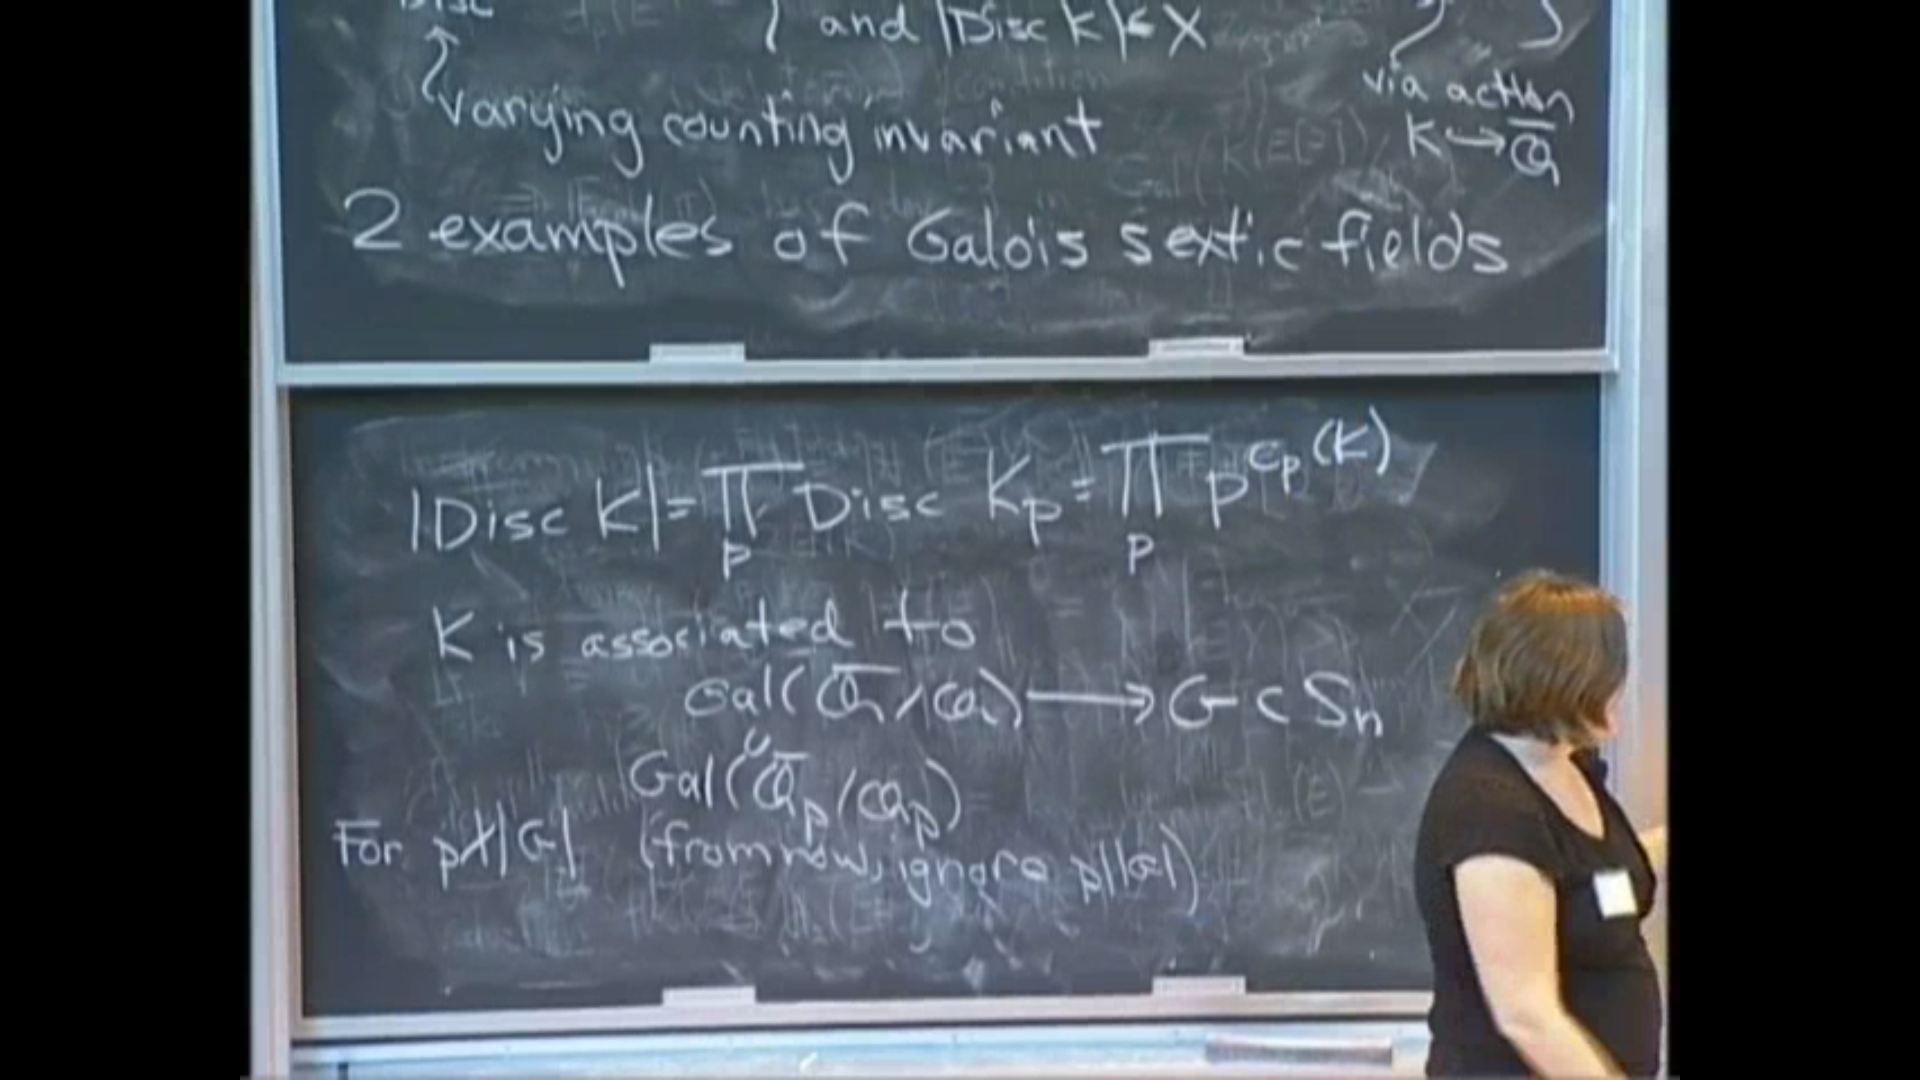 Disc } and |Disc K| < X
via action
varying counting invariant K ↪ Q̅
2 examples of Galois sextic fields
|Disc K| = ∏_p Disc K_p = ∏_p p^{c_p(K)}
K is associated to
Gal(Q̅/Q) ⟶ G ⊂ S_n
∪
Gal(Q̅_p/Q_p)
For p∤|G| (from now, ignore p||G|)